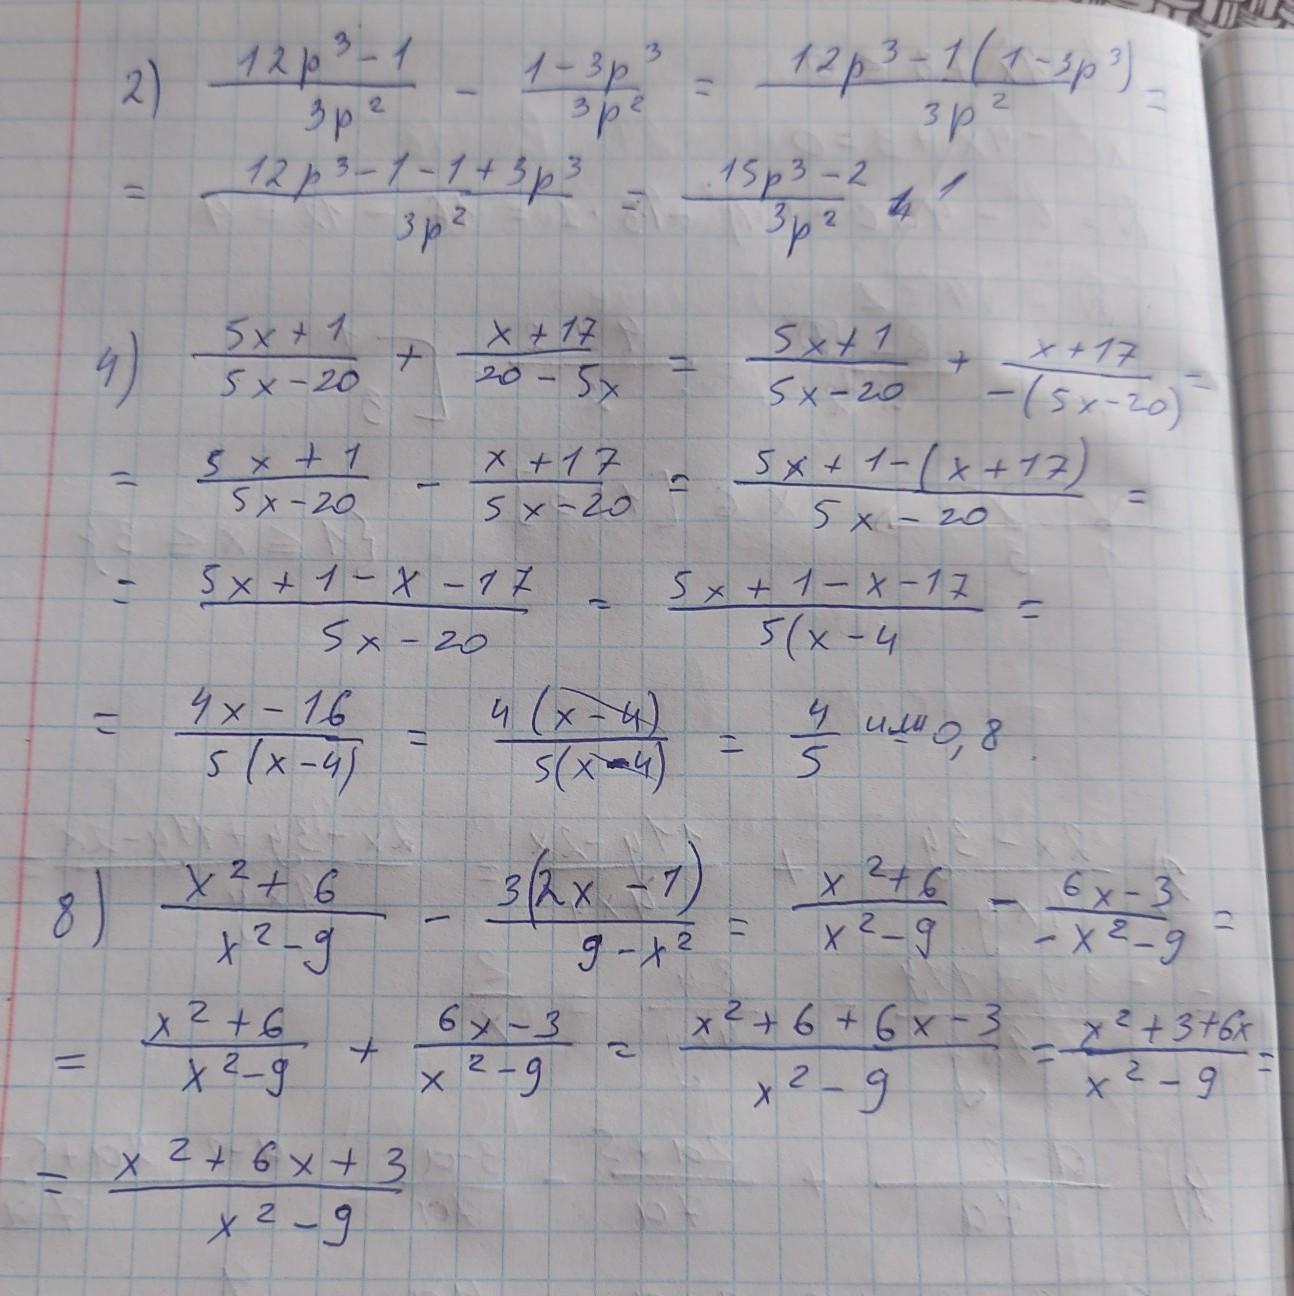 2) (12p³ - 1)/(3p²) - (1 - 3p³)/(3p²) = (12p³ - 1(1 - 3p³))/(3p²) =
= (12p³ - 1 - 1 + 3p³)/(3p²) = (15p³ - 2)/(3p²) 1
4) (5x + 1)/(5x - 20) + (x + 17)/(20 - 5x) = (5x + 1)/(5x - 20) + (x + 17)/(-(5x - 20)) =
= (5x + 1)/(5x - 20) - (x + 17)/(5x - 20) = (5x + 1 - (x + 17))/(5x - 20) =
= (5x + 1 - x - 17)/(5x - 20) = (5x + 1 - x - 17)/(5(x - 4) =
= (4x - 16)/(5(x - 4)) = (4(x - 4))/(5(x - 4)) = 4/5 или 0,8
8) (x² + 6)/(x² - 9) - (3(2x - 1))/(9 - x²) = (x² + 6)/(x² - 9) - (6x - 3)/(-x² - 9) =
= (x² + 6)/(x² - 9) + (6x - 3)/(x² - 9) = (x² + 6 + 6x - 3)/(x² - 9) = (x² + 3 + 6x)/(x² - 9) =
= (x² + 6x + 3)/(x² - 9)